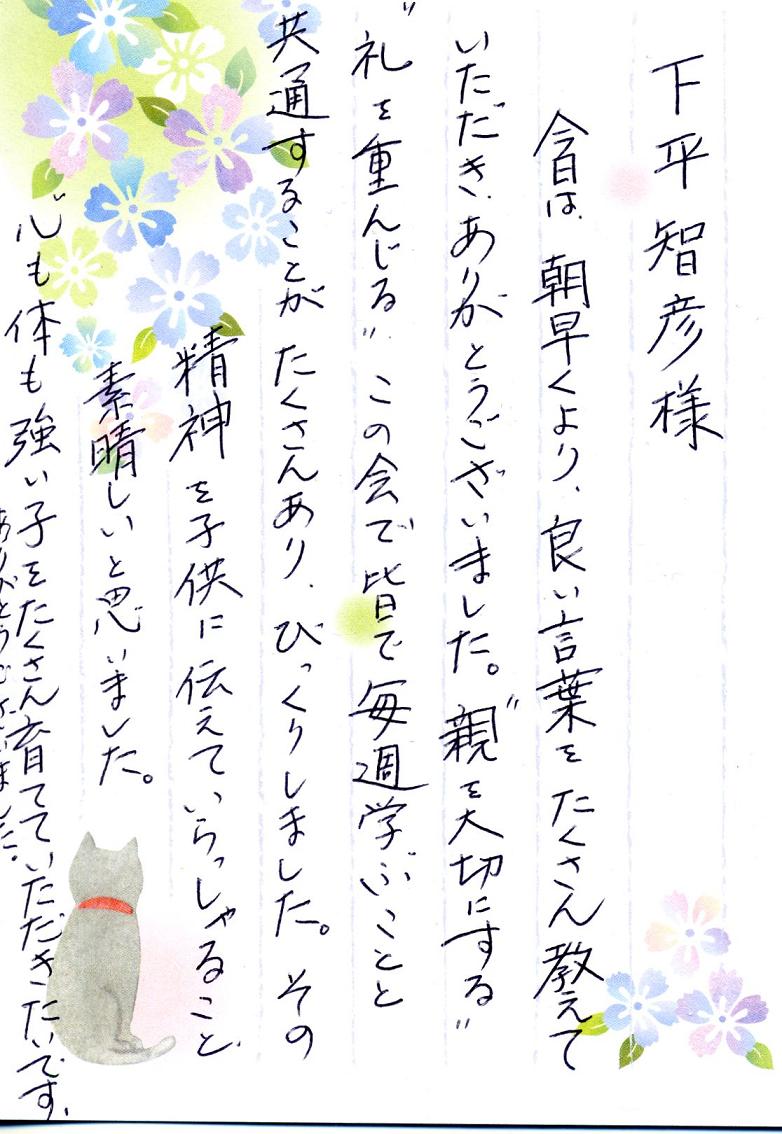 下平智彦様
今日は、朝早くより、良い言葉をたくさん教えて
いただき、ありがとうございました。〝親を大切にする〟
〝礼を重んじる〟この会で皆で毎週学ぶことと
共通することがたくさんあり、びっくりしました。その
精神を子供に伝えていらっしゃること、
素晴しいと思いました。
心も体も強い子をたくさん育てていただきたいです。
ありがとうございました。